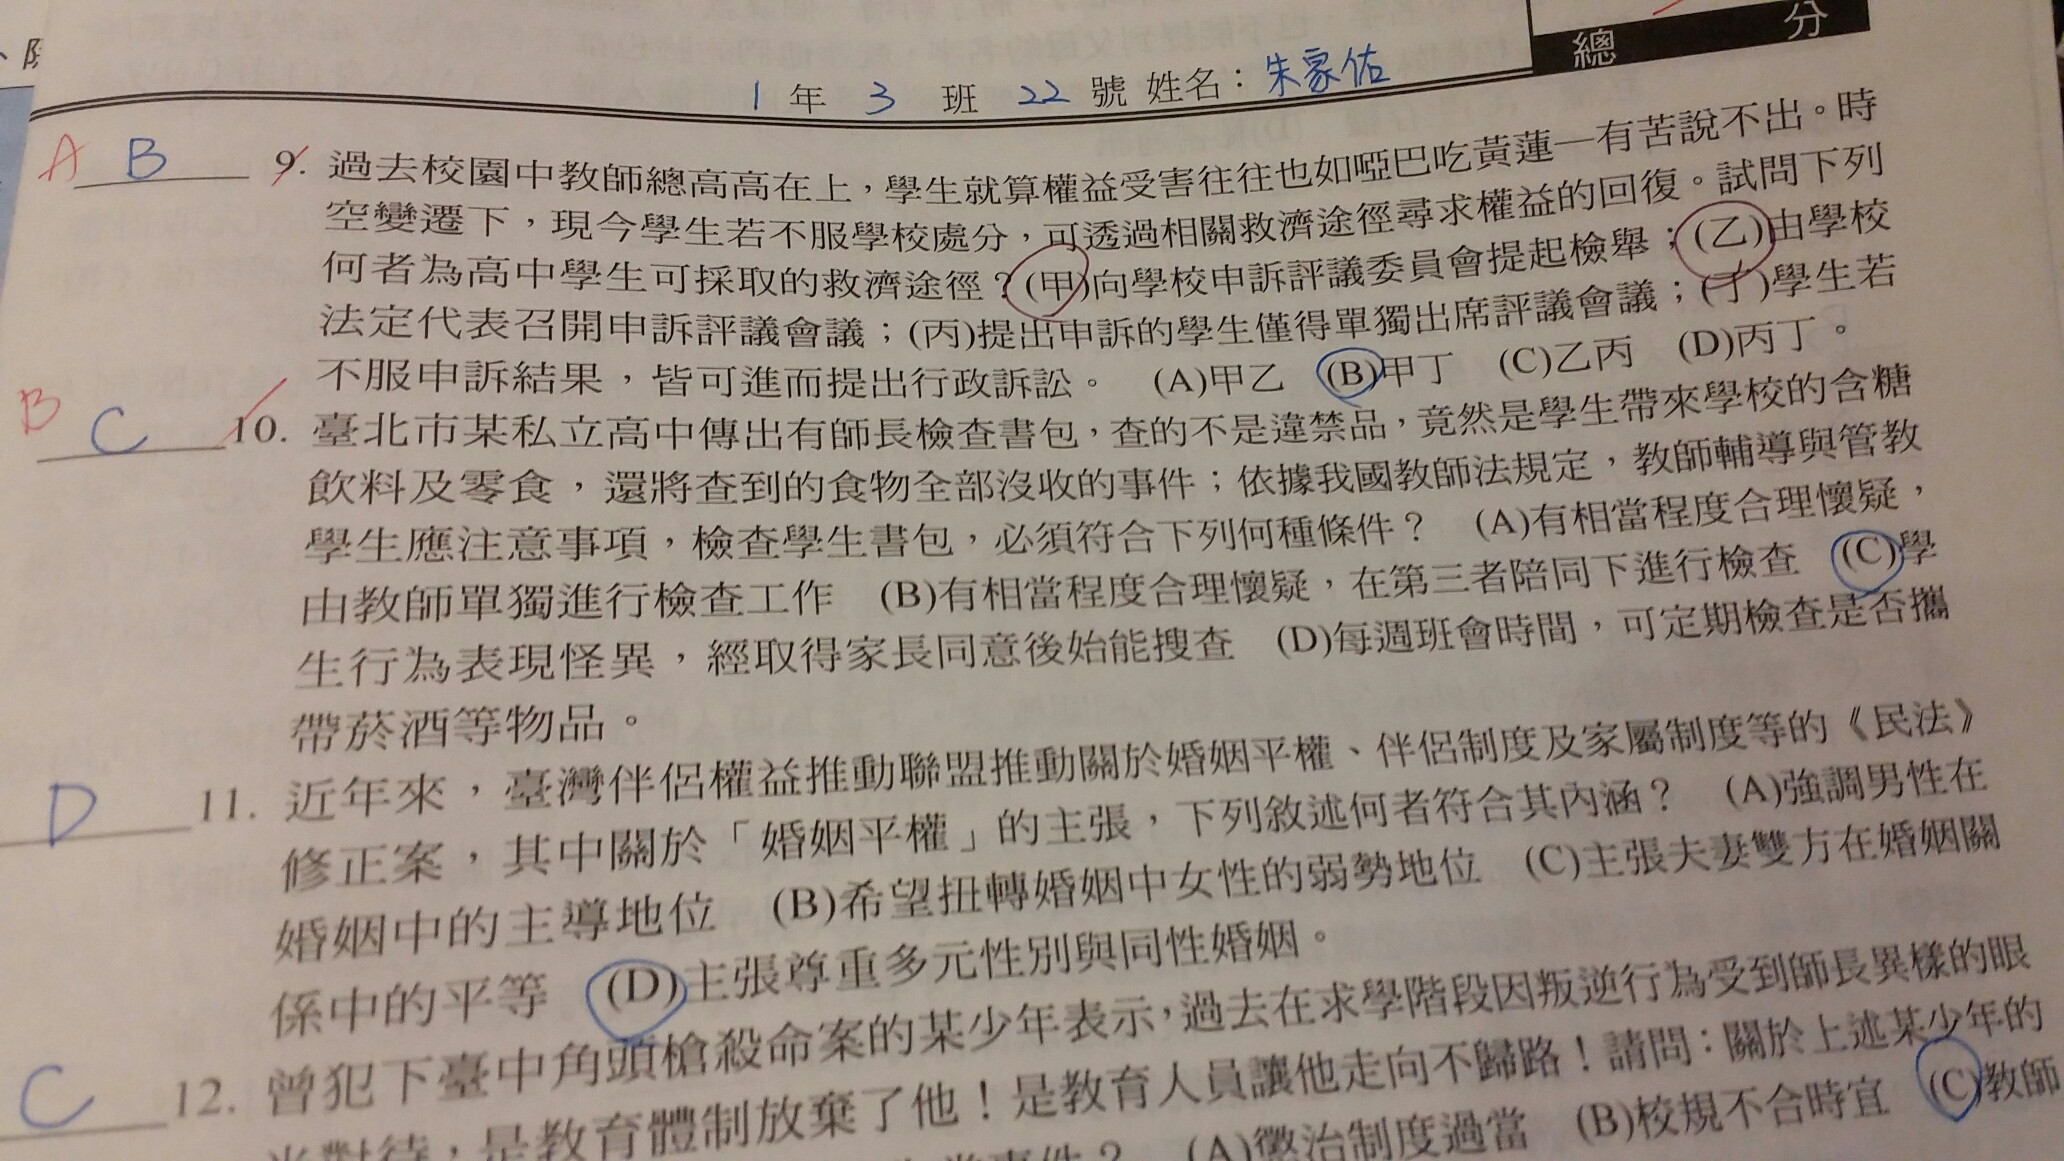 總 分
1 年 3 班 22 號 姓名：朱家佑
A B 9. 過去校園中教師總高高在上，學生就算權益受害往往也如啞巴吃黃蓮—有苦說不出。時
空變遷下，現今學生若不服學校處分，可透過相關救濟途徑尋求權益的回復。試問下列
何者為高中學生可採取的救濟途徑？(甲)向學校申訴評議委員會提起檢舉；(乙)由學校
法定代表召開申訴評議會議；(丙)提出申訴的學生僅得單獨出席評議會議；(丁)學生若
不服申訴結果，皆可進而提出行政訴訟。 (A)甲乙 (B)甲丁 (C)乙丙 (D)丙丁。
B C 10. 臺北市某私立高中傳出有師長檢查書包，查的不是違禁品，竟然是學生帶來學校的含糖
飲料及零食，還將查到的食物全部沒收的事件；依據我國教師法規定，教師輔導與管教
學生應注意事項，檢查學生書包，必須符合下列何種條件？ (A)有相當程度合理懷疑，
由教師單獨進行檢查工作 (B)有相當程度合理懷疑，在第三者陪同下進行檢查 (C)學
生行為表現怪異，經取得家長同意後始能搜查 (D)每週班會時間，可定期檢查是否攜
帶菸酒等物品。
D 11. 近年來，臺灣伴侶權益推動聯盟推動關於婚姻平權、伴侶制度及家屬制度等的《民法》
修正案，其中關於「婚姻平權」的主張，下列敘述何者符合其內涵？ (A)強調男性在
婚姻中的主導地位 (B)希望扭轉婚姻中女性的弱勢地位 (C)主張夫妻雙方在婚姻關
係中的平等 (D)主張尊重多元性別與同性婚姻。
C 12. 曾犯下臺中角頭槍殺命案的某少年表示，過去在求學階段因叛逆行為受到師長異樣的眼
光對待，是教育體制放棄了他！是教育人員讓他走向不歸路！請問：關於上述某少年的
(A)懲治制度過當 (B)校規不合時宜 (C)教師